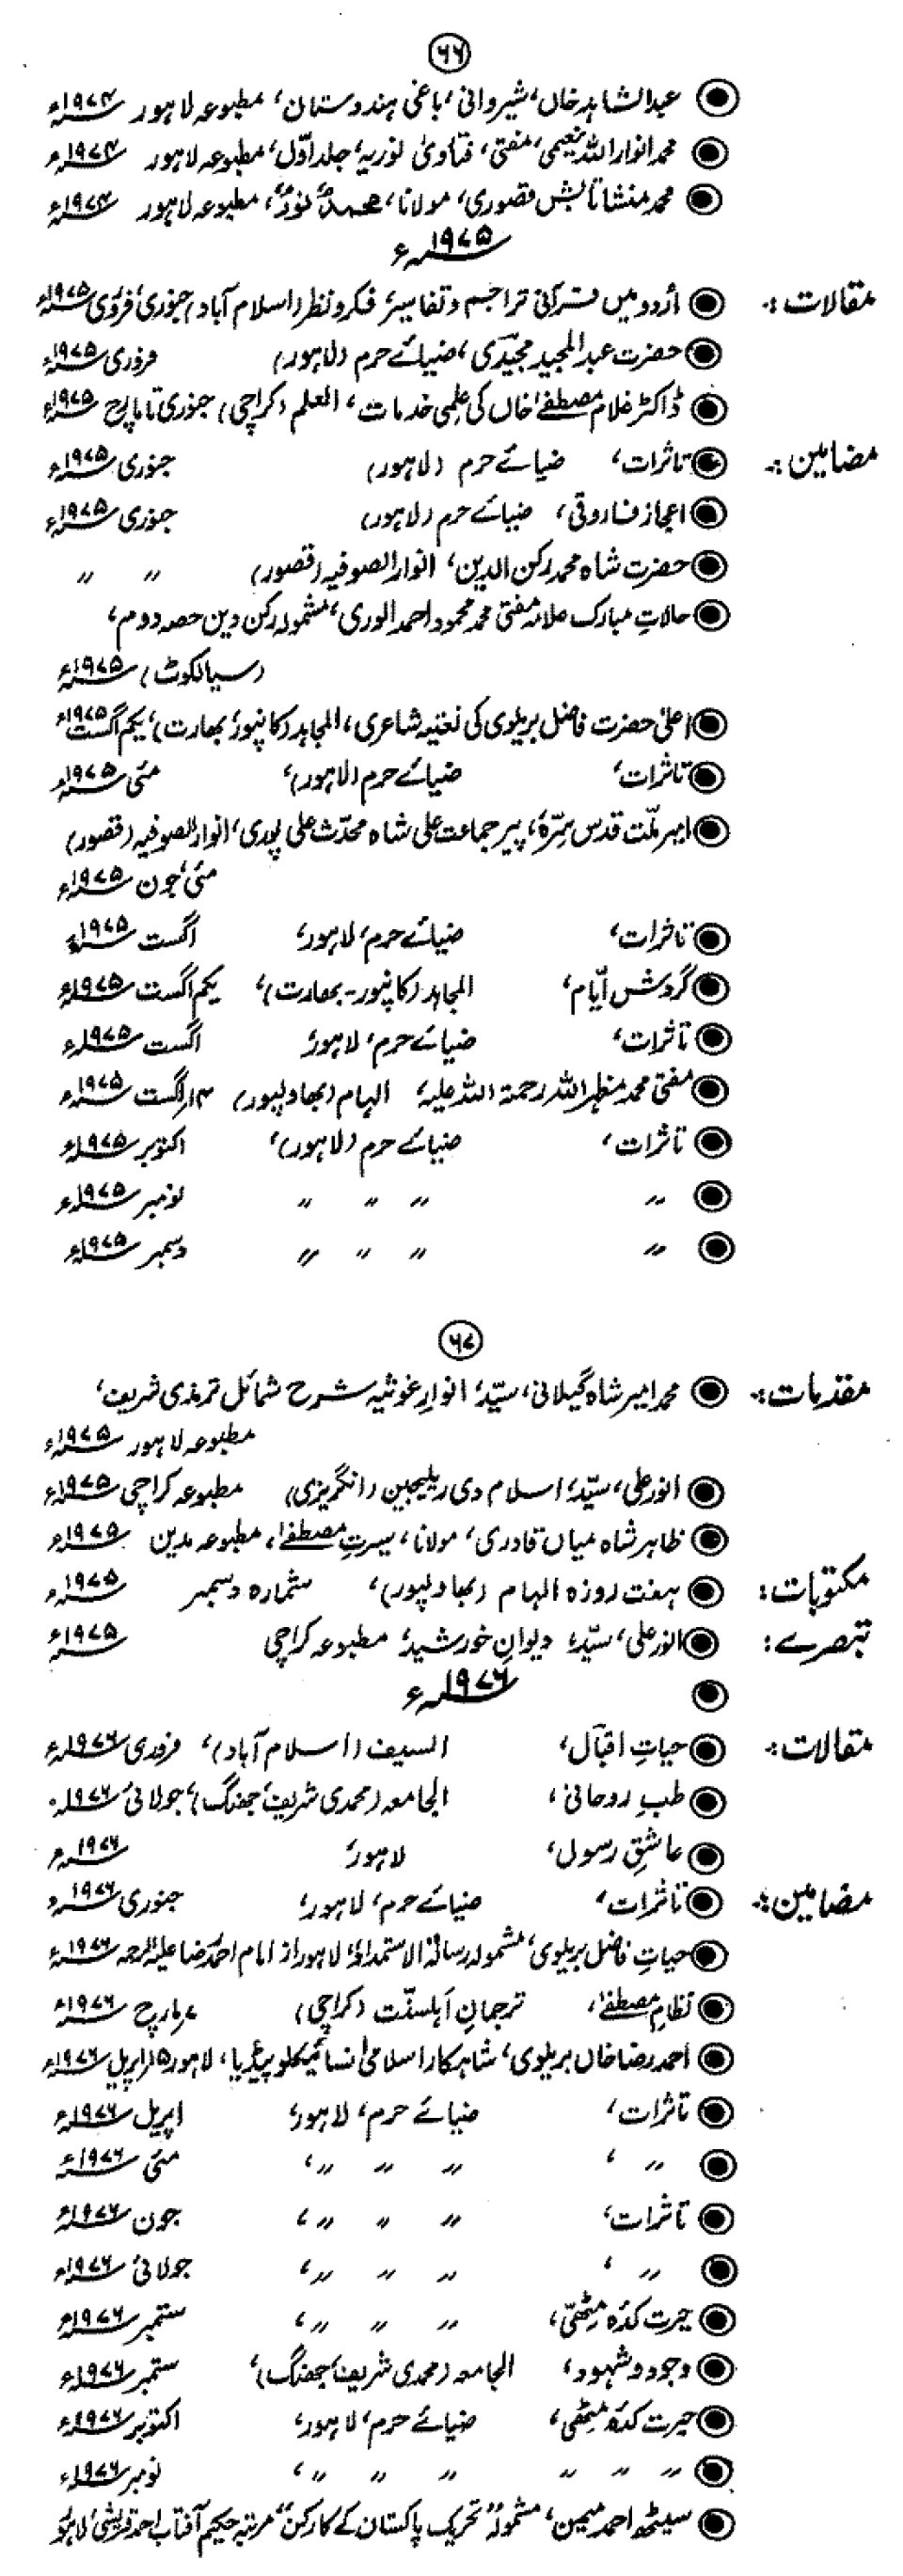 ۶۶
◉ عبدالشاہد خاں، شیروانی، باغی ہندوستان، مطبوعہ لاہور ۱۹۷۴ء
◉ محمد انوار اللہ نعیمی، مفتی، فتاویٰ نوریہ، جلد اوّل، مطبوعہ لاہور ۱۹۷۴ء
◉ محمد منشا تابش قصوری، مولانا، محمدؐ نورؐ، مطبوعہ لاہور ۱۹۷۴ء
۱۹۷۵ء
مقالات: ◉ اُردو میں قرآنی تراجم و تفاسیر، فکر و نظر (اسلام آباد) جنوری، فروری ۱۹۷۵ء
◉ حضرت عبدالمجید مجیدی، ضیائے حرم (لاہور) فروری ۱۹۷۵ء
◉ ڈاکٹر غلام مصطفےٰ خاں کی علمی خدمات، العلم (کراچی) جنوری تا مارچ ۱۹۷۵ء
مضامین: ◉ تاثرات، ضیائے حرم (لاہور) جنوری ۱۹۷۵ء
◉ اعجاز فاروقی، ضیائے حرم (لاہور) جنوری ۱۹۷۵ء
◉ حضرت شاہ محمد رکن الدین، انوار الصوفیہ (قصور) 〃 〃
◉ حالاتِ مبارک علامہ مفتی محمد محمود احمد الوری، مشمولہ رکن دین حصہ دوم،
(سیالکوٹ) ۱۹۷۵ء
◉ اعلیٰ حضرت فاضل بریلوی کی نعتیہ شاعری، المجاہد (کانپور، بھارت)، یکم اگست ۱۹۷۵ء
◉ تاثرات، ضیائے حرم (لاہور)، مئی ۱۹۷۵ء
◉ امیر ملّت قدس سرّہٗ، پیر جماعت علی شاہ محدّث علی پوری، انوار الصوفیہ (قصور)
مئی، جون ۱۹۷۵ء
◉ تاثرات، ضیائے حرم، لاہور، اگست ۱۹۷۵ء
◉ گردش ایّام، المجاہد (کانپور۔ بھارت)، یکم اگست ۱۹۷۵ء
◉ تاثرات، ضیائے حرم، لاہور، اگست ۱۹۷۵ء
◉ مفتی محمد مظہر اللہ رحمۃ اللہ علیہ، الہام (بھاولپور) ۱۴ اگست ۱۹۷۵ء
◉ تاثرات، ضیائے حرم (لاہور)، اکتوبر ۱۹۷۵ء
◉ 〃 〃 〃 〃 نومبر ۱۹۷۵ء
◉ 〃 〃 〃 〃 دسمبر ۱۹۷۵ء
۶۷
مقدمات: ◉ محمد امیر شاہ گیلانی، سیّد، انوارِ غوثیہ شرح شمائل ترمذی شریف،
مطبوعہ لاہور ۱۹۷۵ء
◉ انور علی، سیّد، اسلام دی ریلیجین (انگریزی) مطبوعہ کراچی ۱۹۷۵ء
◉ ظاہر شاہ میاں قادری، مولانا، سیرتِ مصطفےٰ، مطبوعہ مدین ۱۹۷۵ء
مکتوبات: ◉ ہفت روزہ الہام (بھاولپور)، شمارہ دسمبر ۱۹۷۵ء
تبصرے: ◉ انور علی، سیّد، دیوانِ خورشید، مطبوعہ کراچی ۱۹۷۵ء
◉ ۱۹۷۶ء
مقالات: ◉ حیاتِ اقبال، السیف (اسلام آباد)، فروری ۱۹۷۶ء
◉ طبِ روحانی، الجامعہ (محمدی شریف، جھنگ)، جولائی ۱۹۷۶ء
◉ عاشقِ رسول، لاہور، ۱۹۷۶ء
مضامین: ◉ تاثرات، ضیائے حرم، لاہور، جنوری ۱۹۷۶ء
◉ حیاتِ فاضل بریلوی، مشمولہ رسالۃ الاستمداد، لاہور از امام احمد رضا علیہ الرحمہ ۱۹۷۶ء
◉ نظامِ مصطفےٰ، ترجمانِ اہلسنّت (کراچی) مارچ ۱۹۷۶ء
◉ احمد رضا خاں بریلوی، شاہکار اسلامی انسائیکلوپیڈیا، لاہور ۱۵ اپریل ۱۹۷۶ء
◉ تاثرات، ضیائے حرم، لاہور، اپریل ۱۹۷۶ء
◉ 〃، 〃 〃 〃، مئی ۱۹۷۶ء
◉ تاثرات، 〃 〃 〃، جون ۱۹۷۶ء
◉ 〃، 〃 〃 〃، جولائی ۱۹۷۶ء
◉ حیرت کدہ مٹھی، 〃 〃 〃، ستمبر ۱۹۷۶ء
◉ وجود و شہود، الجامعہ (محمدی شریف، جھنگ)، ستمبر ۱۹۷۶ء
◉ حیرت کدہ مٹھی، ضیائے حرم، لاہور، اکتوبر ۱۹۷۶ء
◉ 〃 〃 〃 〃 〃 〃، نومبر ۱۹۷۶ء
◉ سیٹھ احمد میمن، مشمولہ "تحریک پاکستان کے کارکن" مرتبہ حکیم آفتاب احمد قریشی، لاہور